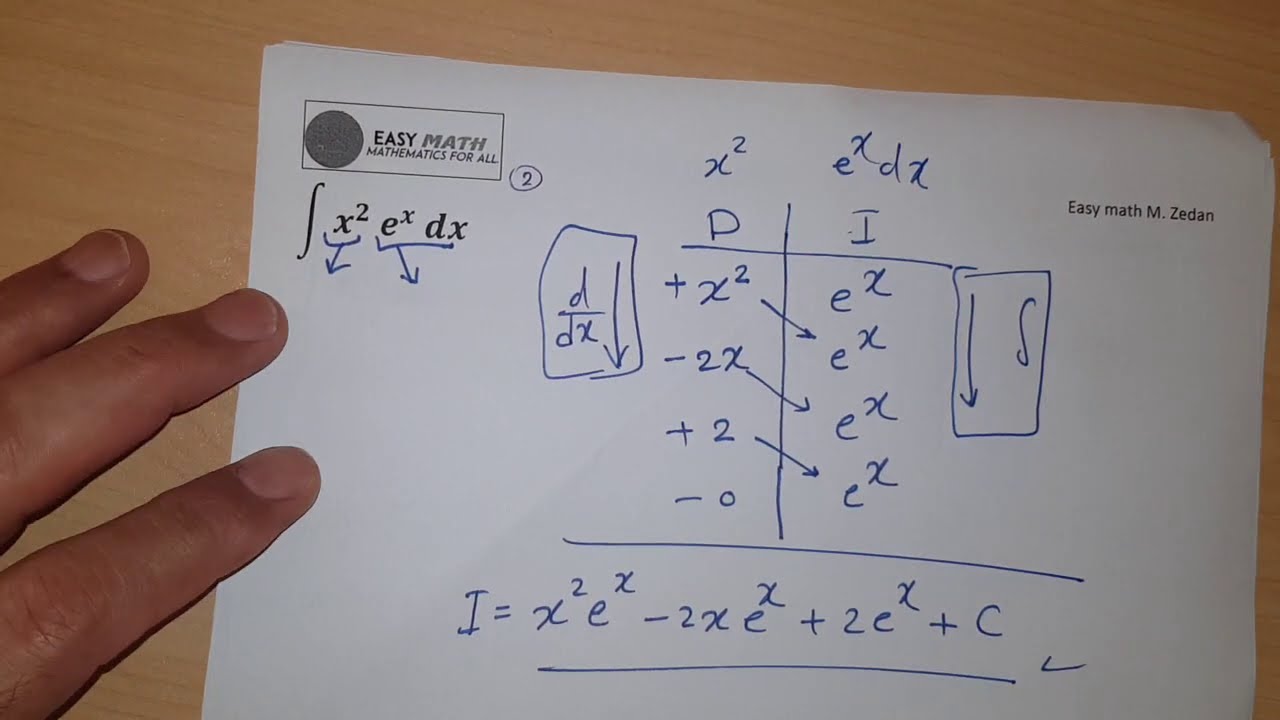 EASY MATH
MATHEMATICS FOR ALL
2
∫ x² eˣ dx
Easy math M. Zedan
x² eˣ dx
D I
d/dx
∫
+ x² eˣ
- 2x eˣ
+ 2 eˣ
- 0 eˣ
I = x² eˣ - 2x eˣ + 2eˣ + C